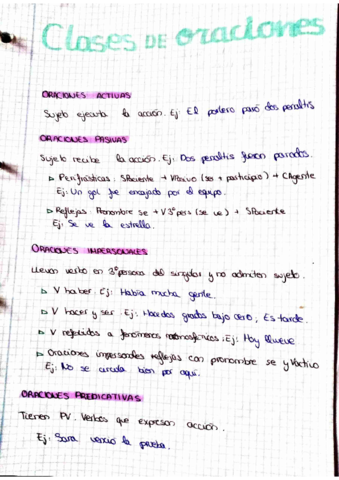 Clases DE oraciones
ORACIONES ACTIVAS
Sujeto ejecuta la acción. Ej: El portero paró dos penaltis
ORACIONES PASIVAS
Sujeto recibe la acción. Ej: Dos penaltis fueron parados.
▷ Perifrásticas: SPaciente + VPasivo (ser + participio) + CAgente
Ej: Un gol fue encajado por el equipo.
▷ Reflejas: Pronombre se + V 3ª pers (se ve) + SPaciente
Ej: Se ve la estrella.
ORACIONES IMPERSONALES
Llevan verbo en 3ª persona del singular y no admiten sujeto.
▷ V haber. Ej: Había mucha gente.
▷ V hacer y ser. Ej: Hace dos grados bajo cero, Es tarde.
▷ V referidos a fenómenos Ej: Hoy llueve
▷ Oraciones impersonales reflejas con pronombre se y VActivo
Ej: No se circula bien por aquí.
ORACIONES PREDICATIVAS
Tienen PV. Verbos que expresan acción.
Ej: Sara venció la prueba.